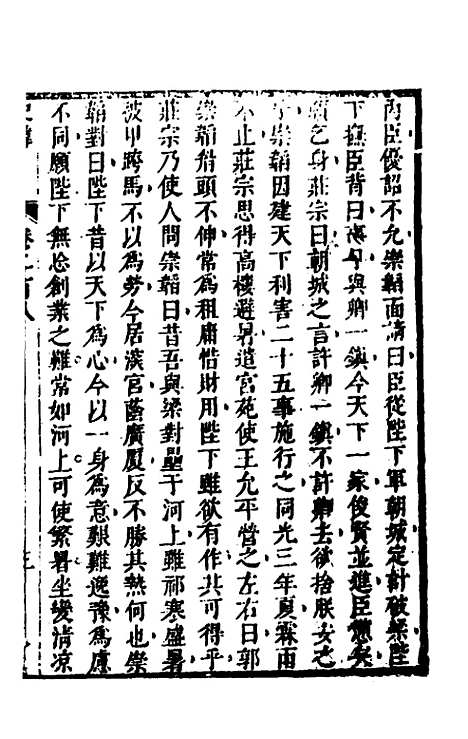 內臣優詔不允崇韜面請曰臣從陛下軍朝城定計破梁陛
下撫臣背曰事了與卿一鎮今天下一家俊賢並進臣憊矣
願乞身莊宗曰朝城之言許卿一鎮不許卿去欲捨朕安之
乎崇韜因建天下利害二十五事施行之同光三年夏霖雨
不止莊宗思得高樓避暑遣宮苑使王允平營之左右曰郭
崇韜眉頭不伸常為租庸惜財用陛下雖欲有作其可得乎
莊宗乃使人問崇韜曰昔吾與梁對壘于河上雖祁寒盛暑
被甲跨馬不以為勞今居深宮蔭廣厦反不勝其熱何也崇
韜對曰陛下昔以天下為心今以一身為意艱難逸豫為慮
不同願陛下無忘創業之難常如河上可使繁暑坐變清凉
卷二百八